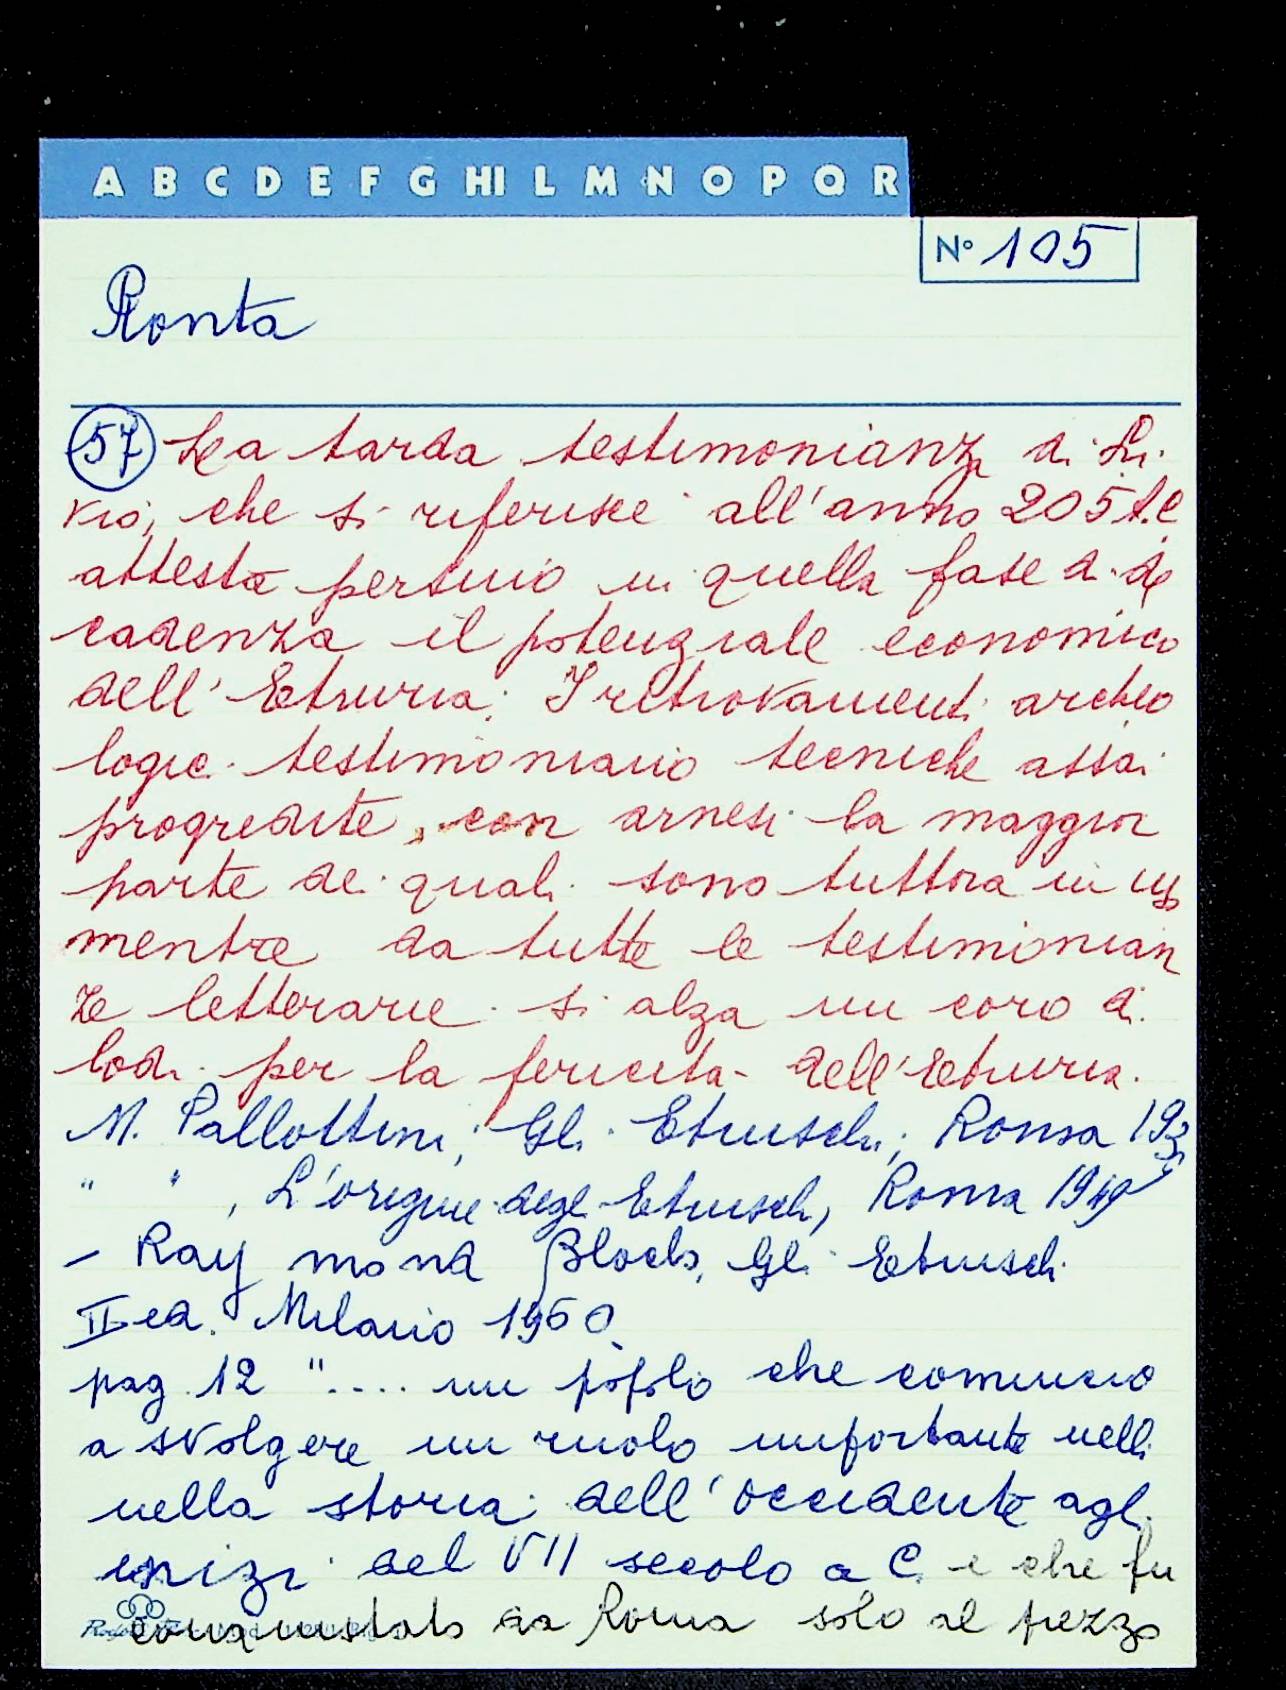 A B C D E F G HI L M N O P Q R
N° 105
Ronta
57 La tarda testimonianza di Li-
vio, che si riferisce all'anno 205 A.C
attesta persino in quella fase di de
cadenza il potenziale economico
dell'Etruria; I ritrovamenti archeo
logici testimoniano tecniche assai
progredite, con arnesi la maggior
parte dei quali sono tuttora in uso
mentre da tutte le testimonian
ze letterarie si alza un coro di
lodi per la fericità dell'Etruria.
M. Pallottini; Gli Etruschi; Roma 193
" " , L'origine degli Etruschi, Roma 1949
- Raymond Bloch, Gli Etruschi
II ed. Milano 1960
pag 12 ".... un popolo che cominciò
a svolgere un ruolo importante nelli
nella storia dell'occidente agli
inizi del VII secolo a C. e che fu
conquistato da Roma solo al prezzo